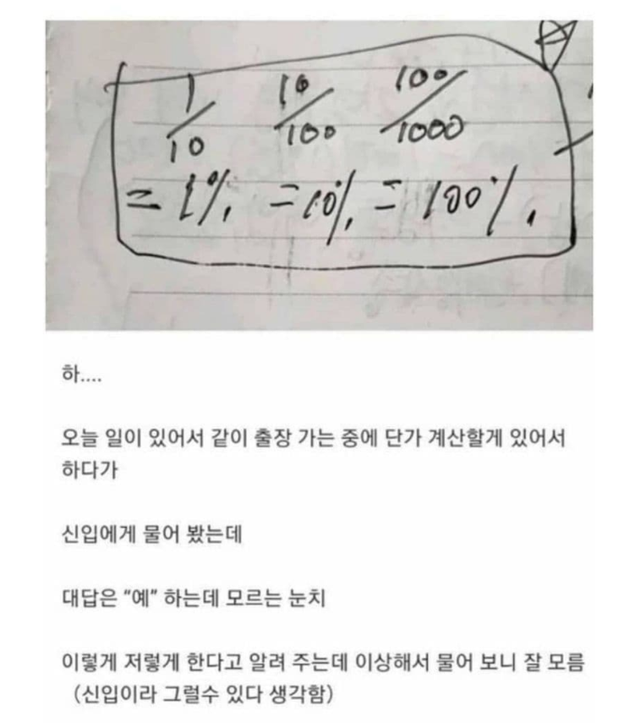 1/10 10/100 100/1000
= 1%, = 10%, = 100%.
하....
오늘 일이 있어서 같이 출장 가는 중에 단가 계산할게 있어서
하다가
신입에게 물어 봤는데
대답은 “예” 하는데 모르는 눈치
이렇게 저렇게 한다고 알려 주는데 이상해서 물어 보니 잘 모름
(신입이라 그럴수 있다 생각함)